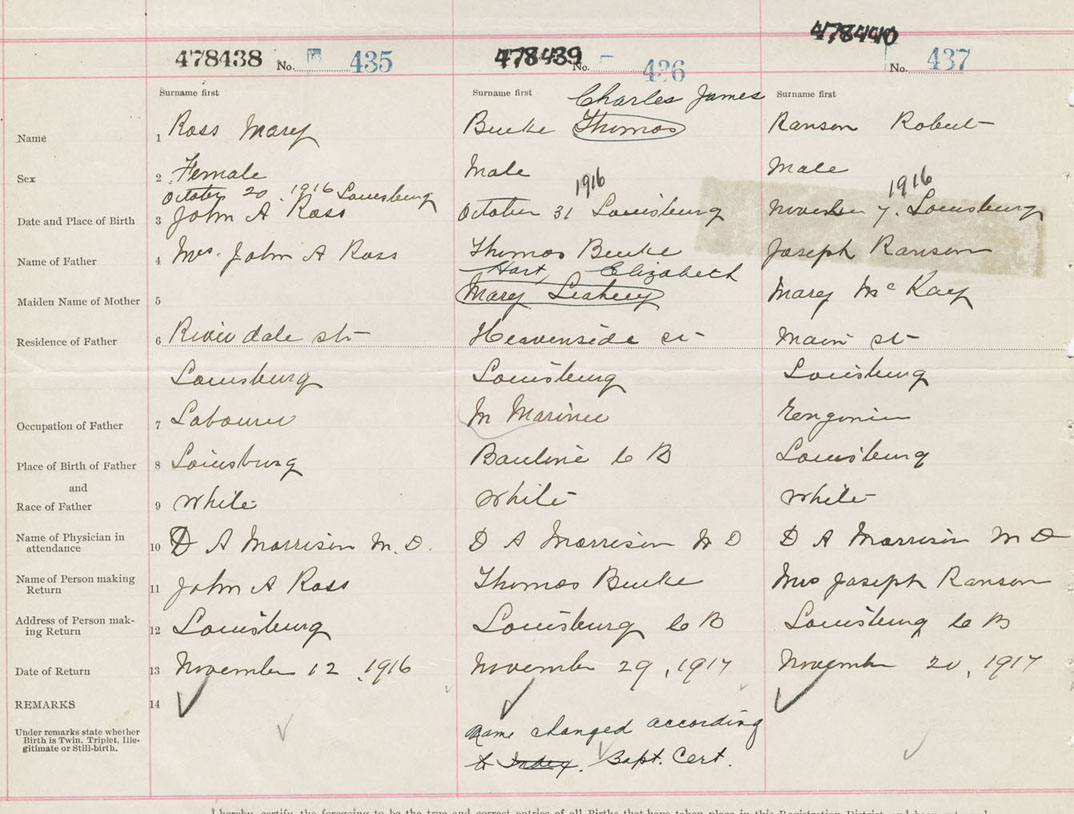 478438 No. 435
478439 No. 436
478440 No. 437
Surname first Surname first Charles James Surname first
Name 1 Ross Mary Burke Thomas Ranson Robert
Sex 2 Female Male Male
October 20, 1916 Louisburg 1916 1916
Date and Place of Birth 3 John A Ross October 31 Louisburg November 7. Louisburg
Name of Father 4 Mrs. John A Ross Thomas Burke Joseph Ranson
Hart, Elizabeth
Maiden Name of Mother 5 Mary Leahey Mary McKay
Residence of Father 6 Riverdale st Heavenside st Main st
Louisburg Louisburg Louisburg
Occupation of Father 7 Labourer M Mariner
Place of Birth of Father 8 Louisburg C B Louisburg
and
Race of Father 9 White White White
Name of Physician in
attendance 10 D A Morrison M. D. D A Morrison M D D A Morrison M D
Name of Person making
Return 11 John A Ross Thomas Burke Mrs Joseph Ranson
Address of Person mak-
ing Return 12 Louisburg Louisburg C B Louisburg C B
Date of Return 13 November 12, 1916 November 29, 1917 November 20, 1917
REMARKS 14
Under remarks state whether
Birth is Twin. Triplet, Ille-
gitimate or Still-birth.
Name changed according
to Index. Bapt. Cert.
I hereby certify the foregoing to be the true and correct entries of all Births that have taken place in this Registration District